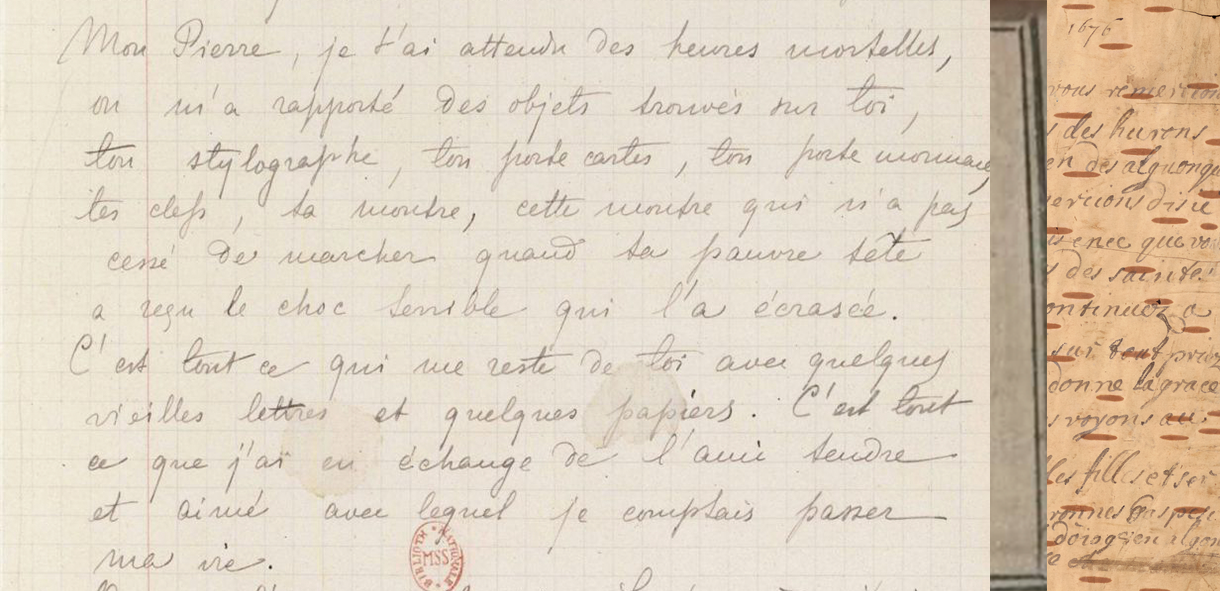 Mon Pierre, je t'ai attendu des heures mortelles,
on m'a rapporté des objets trouvés sur toi,
ton stylographe, ton porte cartes, ton porte monnaie,
tes clefs, ta montre, cette montre qui n'a pas
cessé de marcher quand ta pauvre tête
a reçu le choc terrible qui l'a écrasée.
C'est tout ce qui me reste de toi avec quelques
vieilles lettres et quelques papiers. C'est tout
ce que j'ai en échange de l'ami tendre
et aimé avec lequel je comptais passer
ma vie.
BIBLIOTH. NATIONALE MSS
1676
vous
des hurons
en des
des
continuez a
sur tout
donne la grace
voyons au